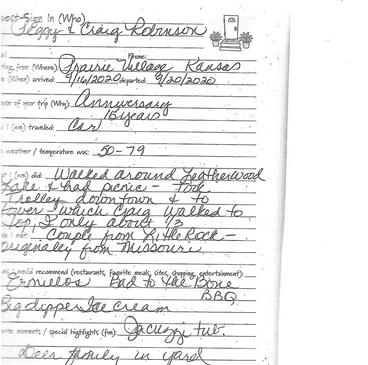 uest Sign In (Who)
Peggy & Craig Robinson
Phone:
ng from (Where): Prairie Village Kansas
(When) arrived: 9/16/2020 departed: 9/20/2020
ose of your trip (Why): Anniversary
18 years
I (we) traveled: Car
weather / temperature was: 50-79
I (we) did: Walked around Leatherwood
Lake & had picnic - Took
Trolley downtown & to
Tower which Craig walked to
Top, I only about 1/3
Couple from Little Rock -
Originally from Missouri
I would recommend (restaurants, favorite meals, cites, shopping, entertainment):
Ermilios Bad to the Bone
BBQ
Big dipper Ice cream
ite moments / special highlights (fun): Jacuzzi tub.
Deer family in yard